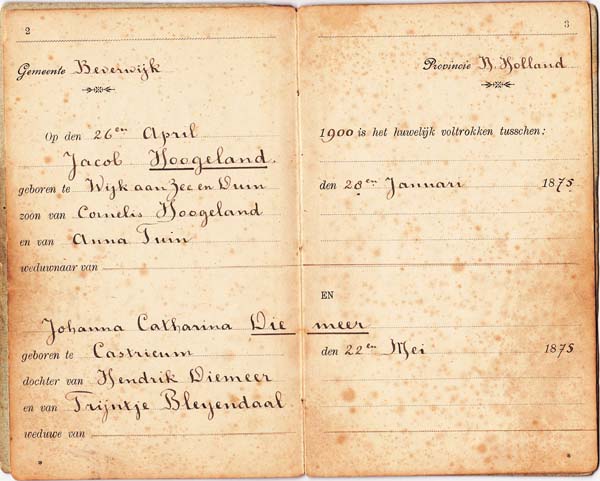 2
Gemeente Beverwijk
Op den 26en April
Jacob Hoogeland.
geboren te Wijk aan Zee en Duin
zoon van Cornelis Hoogeland
en van Anna Tuin
weduwnaar van
Johanna Catharina Die
geboren te Castricum
dochter van Hendrik Diemeer
en van Trijntje Bleyendaal
weduwe van
*
3
Provincie N. Holland
1900 is het huwelijk voltrokken tusschen:
den 28en Januari 1875
EN
meer
den 22en Mei 1875
*